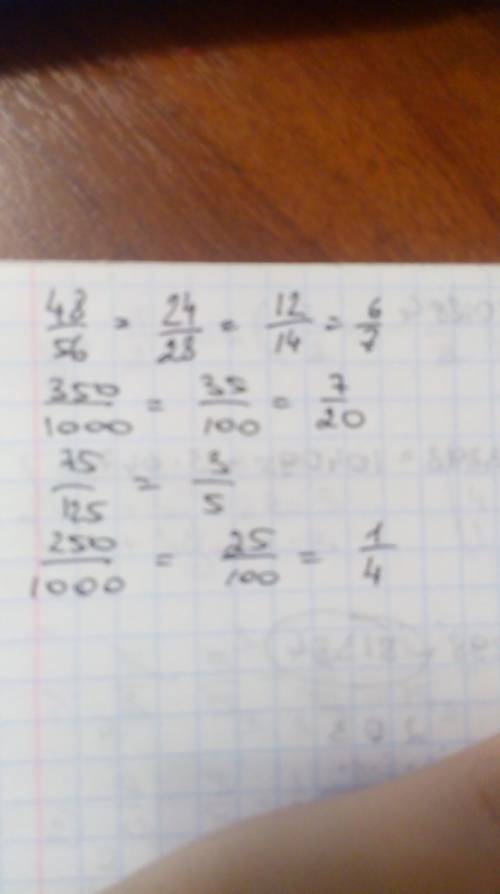 48/56 = 24/28 = 12/14 = 6/7
350/1000 = 35/100 = 7/20
75/125 = 3/5
250/1000 = 25/100 = 1/4